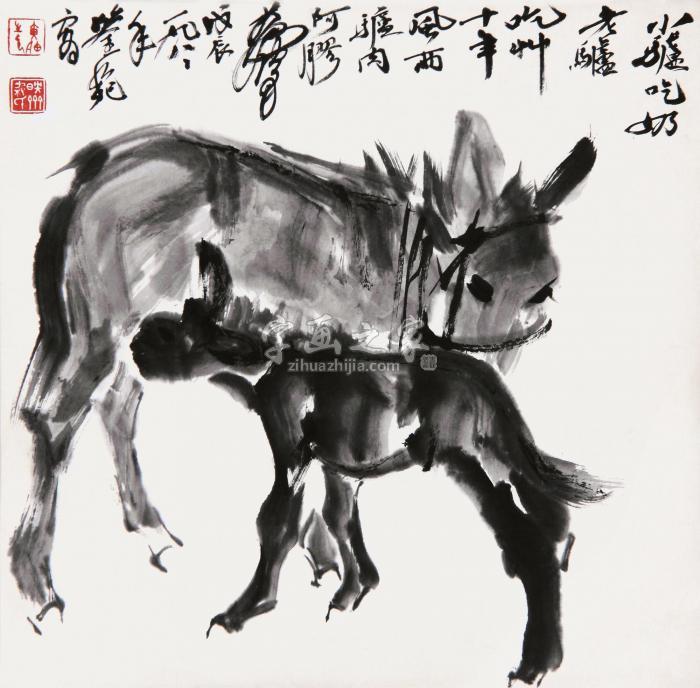 小驢吃奶
老驢
吃艸
十年
風雨
驢肉
阿膠
戊辰
年
字画之家
zihuazhijia.com